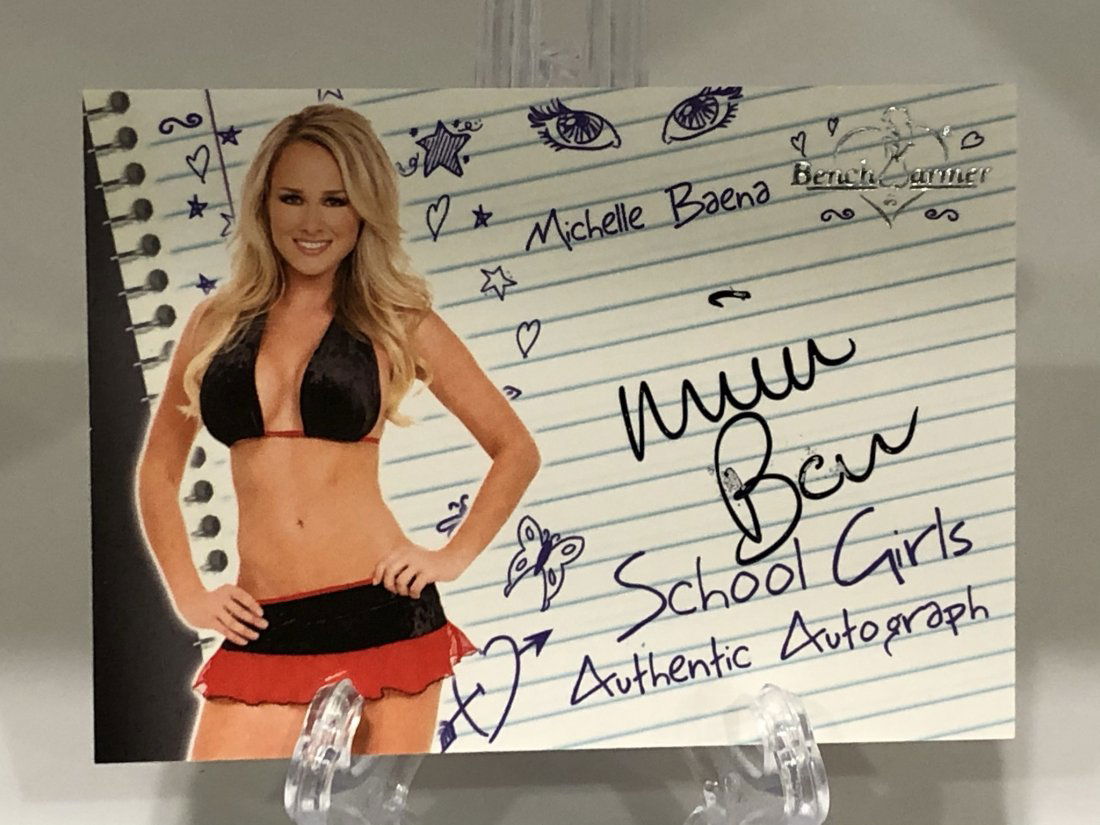 Bench Warmer
Michelle Baena
School Girls
Authentic Autograph